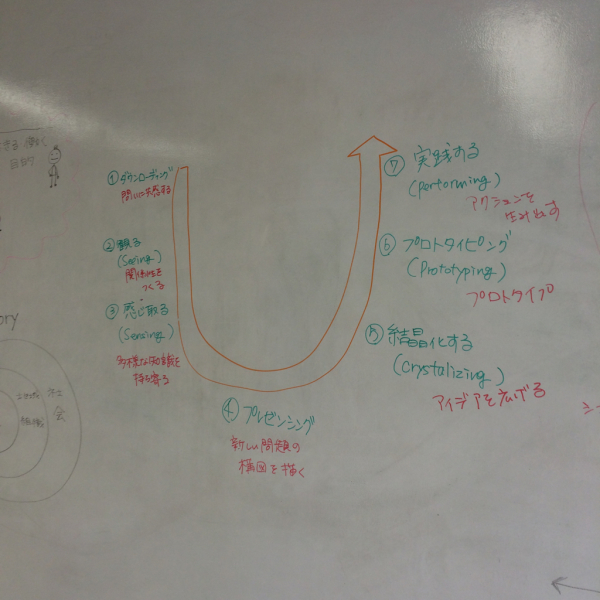 働く
目的
①ダウンローディング
問いに共感する
②観る
(Seeing)
関係性を
つくる
③感じ取る
(Sensing)
多様な知識を
持ち寄る
④プレゼンシング
新しい問題の
構図を描く
⑤結晶化する
(Crystalizing)
アイデアを広げる
⑥プロトタイピング
(Prototyping)
プロトタイプ
⑦実践する
(performing)
アクションを
生み出す
ory
コミュニティ
組織
社会